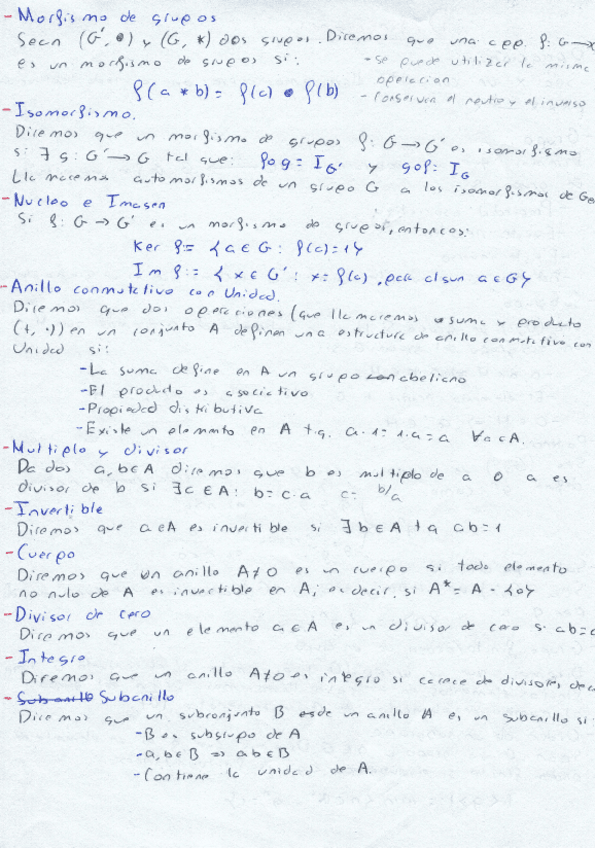 - Morfismo de grupos
Sean (G', •) y (G, *) dos grupos. Diremos que una app. f: G→
es un morfismo de grupos si: - se puede utilizar la misma
operacion
f(a * b) = f(a) • f(b) - conservan el neutro y el inverso
- Isomorfismo.
Diremos que un morfismo de grupos f: G→G' es isomorfismo
si ∃ g: G'→G tal que: f∘g = I_G' y g∘f: I_G
Llamaremos automorfismos de un grupo G a los isomorfismos de G
- Nucleo e Imagen
Si f: G→G' es un morfismo de grupos, entonces:
Ker f:= {a ∈ G: f(a)=1}
Im f:= {x ∈ G': x= f(a), para algun a ∈ G}
- Anillo conmutativo con Unidad.
Diremos que dos operaciones (que llamaremos suma y producto
(+, ·)) en un conjunto A definen una estructura de anillo conmutativo con
Unidad si:
- La suma define en A un grupo abeliano
- El producto es asociativo
- Propiedad distributiva
- Existe un elemento en A t.q. a·1=1·a=a ∀a∈A.
- Multiplo y divisor
Da dos a, b∈A diremos que b es multiplo de a o a es
divisor de b si ∃c∈A: b=c·a c= b/a
- Invertible
Diremos que a∈A es invertible si ∃b∈A tq ab=1
- Cuerpo
Diremos que un anillo A≠0 es un cuerpo si todo elemento
no nulo de A es invertible en A; es decir, si A*= A - {0}
- Divisor de cero
Diremos que un elemento a∈A es un divisor de cero si ab=
- Integro
Diremos que un anillo A≠0 es integro si carece de divisores de
- Subanillo Subanillo
Diremos que un subconjunto B de un anillo A es un subanillo si
- B es subgrupo de A
- a, b∈B ⇒ ab∈B
- Contiene la unidad de A.